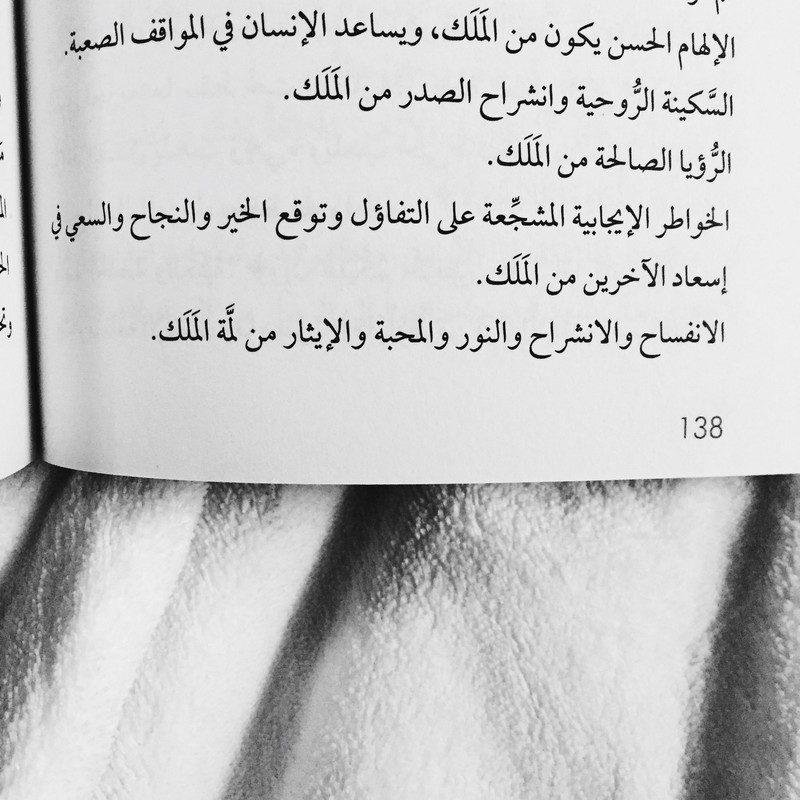 الإلهام الحسن يكون من المَلَك، ويساعد الإنسان في المواقف الصعبة.
السَّكينة الرُّوحية وانشراح الصدر من المَلَك.
الرُّؤيا الصالحة من المَلَك.
الخواطر الإيجابية المشجِّعة على التفاؤل وتوقع الخير والنجاح والسعي في
إسعاد الآخرين من المَلَك.
الانفساح والانشراح والنور والمحبة والإيثار من لمَّة المَلَك.
138